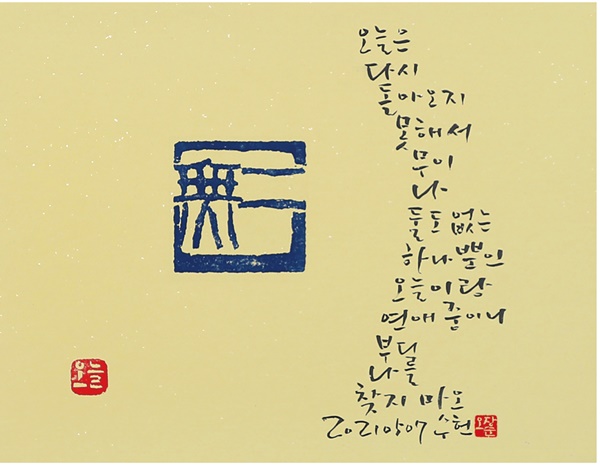 無二
오늘
오늘은
다시
돌아오지
못해서
무이
나
둘도 없는
하나뿐인
오늘이랑
연애 중이니
부디
나를
찾지 마오